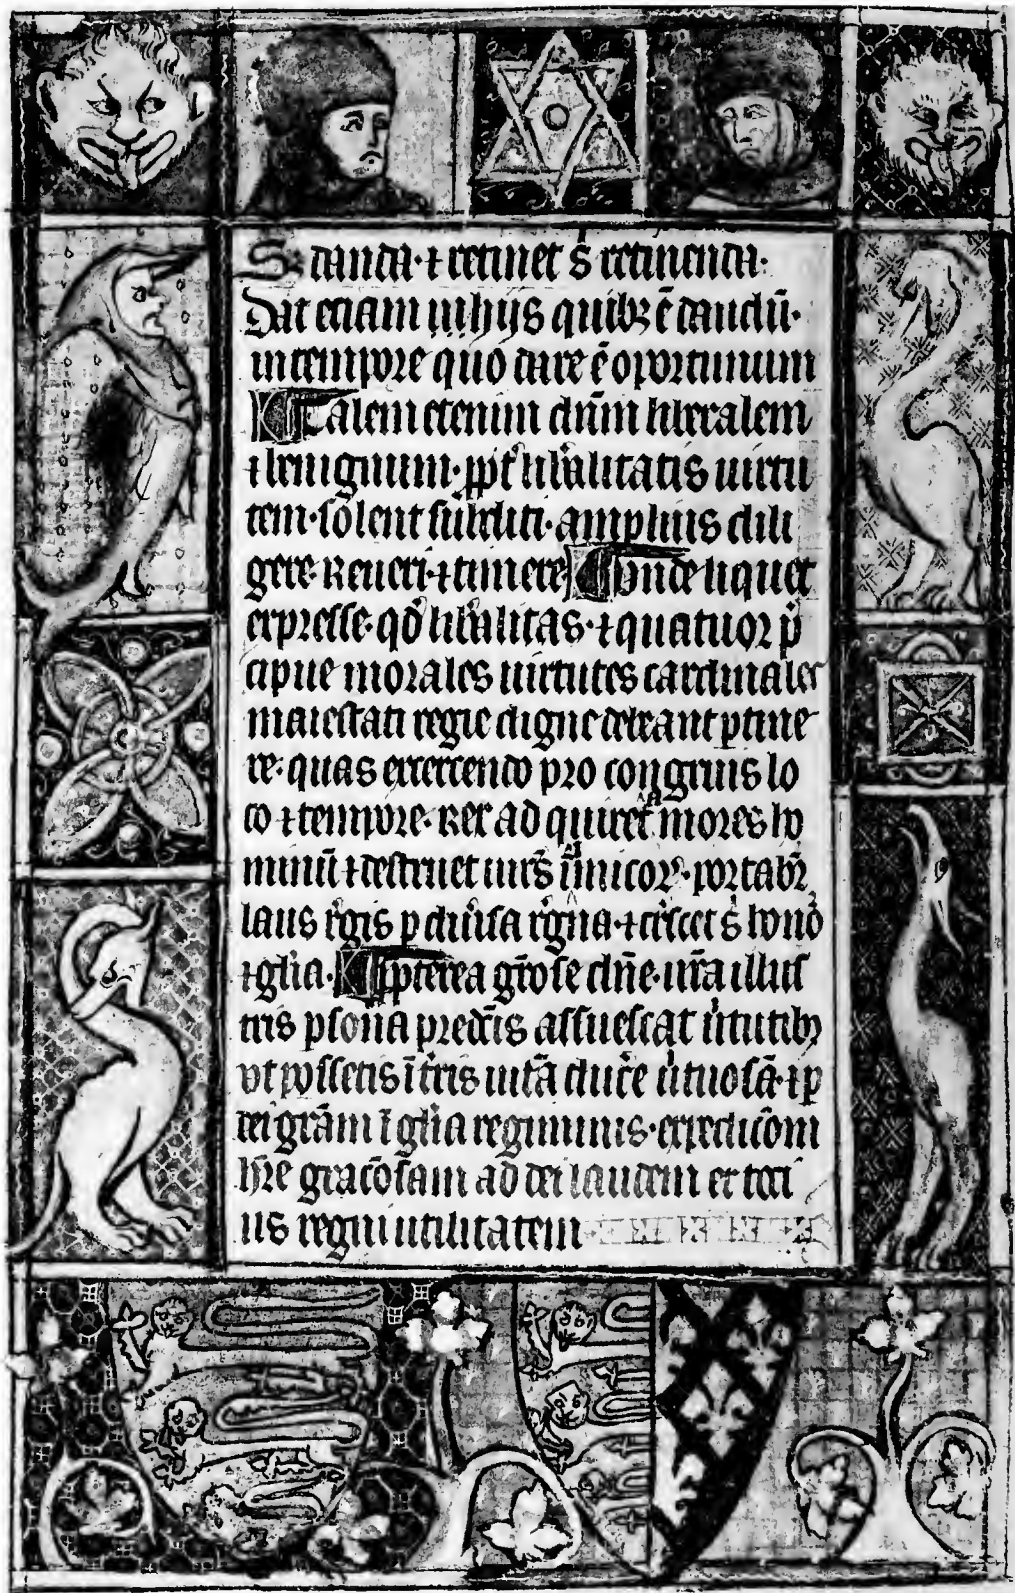 S; danda · ⁊ retinet s̄ retinenda ·
Dat etiam in hijs quibꝫ ē dandū ·
in tempore quo dare ē oportunum
Talem etenim dn̄m liberalem
⁊ benignum · ꝓpt̄ lib̄alitatis uirtu
tem · solent subditi · amplius dili
gere · reueri · ⁊ timere Unde liquet
expresse · qd̄ lib̄alitas · ⁊ quatuor p̄
cipue morales uirtutes cardinales
maiestati regie digne debeant ꝑtine
re · quas exercendo pro congruis lo
co ⁊ tempore · Rex ad quiret mores ho
minū ⁊ destruet uires inimicoꝝ · portabr̄
laus r̄gis ꝑ diu̾sa r̄gna · ⁊ cr̄scet s̄ hono
⁊ gl̄ia · Ꝓpterea gr̄ose dn̄e · ur̄a illus
tris ꝑsona predc̄is assuescat u̾tutibꝫ
vt possetis ī tr̄is uitā duc̄e u̾tuosā · ⁊ ꝑ
dei gr̄am ī gl̄ia regiminis · expedic̄om
hr̄e grac̄osam ad dei laudem et toci
us regni utilitatem